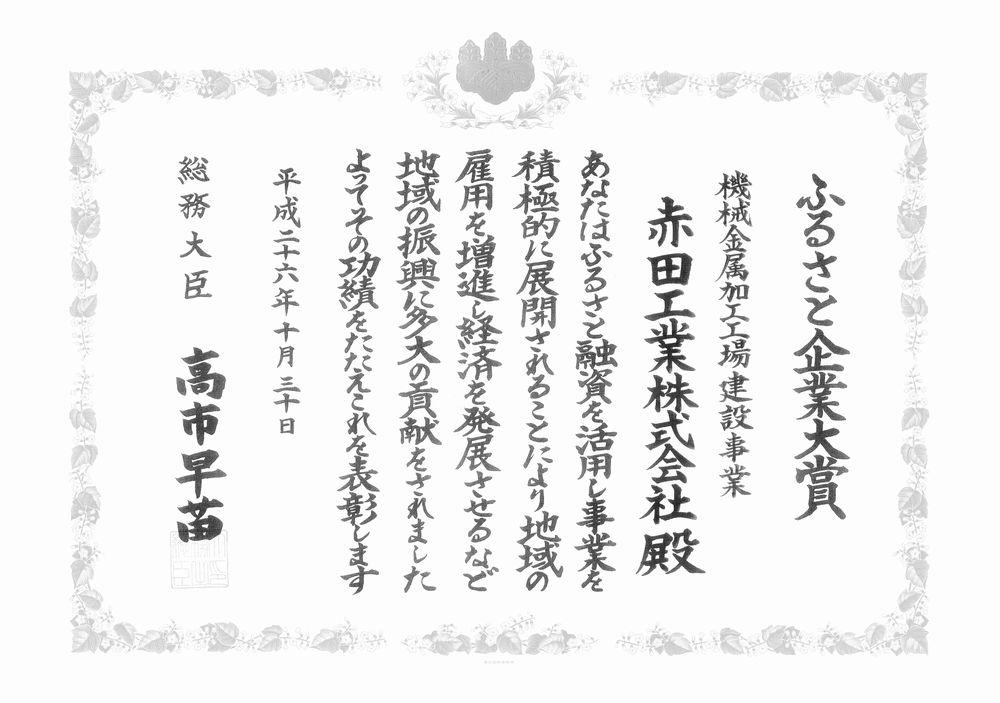 ふるさと企業大賞
機械金属加工工場建設事業
赤田工業株式会社 殿
あなたはふるさと融資を活用し事業を
積極的に展開されることにより地域の
雇用を増進し経済を発展させるなど
地域の振興に多大の貢献をされました
よってその功績をたたえこれを表彰します
平成二十六年十月三十日
総務大臣 高市早苗